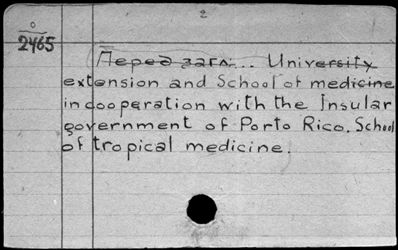 2
0
2465
(Перед загл... University
extension and School of medicine
in cooperation with the Insular
government of Porto Rico. School
of tropical medicine.